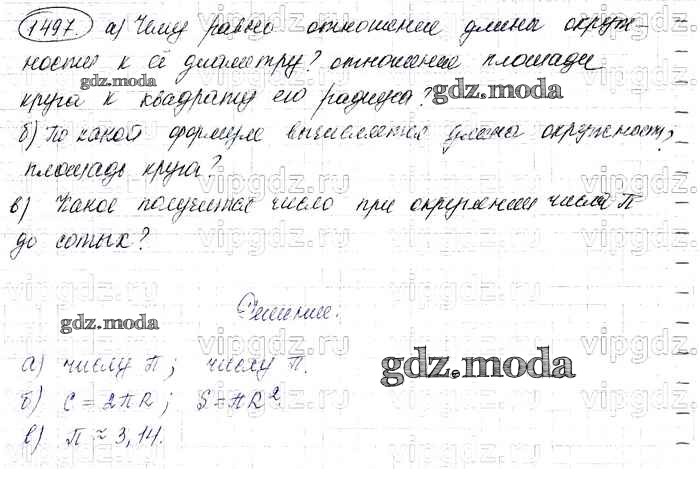 1497. а) Чему равно отношение длины окруж-
ности к её диаметру? отношение площади
круга к квадрату его радиуса?
б) По какой формуле вычисляется длина окружности;
площадь круга?
в) Какое получится число при округлении числа П
до сотых?
Решение.
а) числу П; числу П.
б) C = 2πR; S = πR²
в) π ≈ 3,14.
gdz.moda
gdz.moda
gdz.moda
gdz.moda
vipgdz.ru
vipgdz.ru
vipgdz.ru
vipgdz.ru